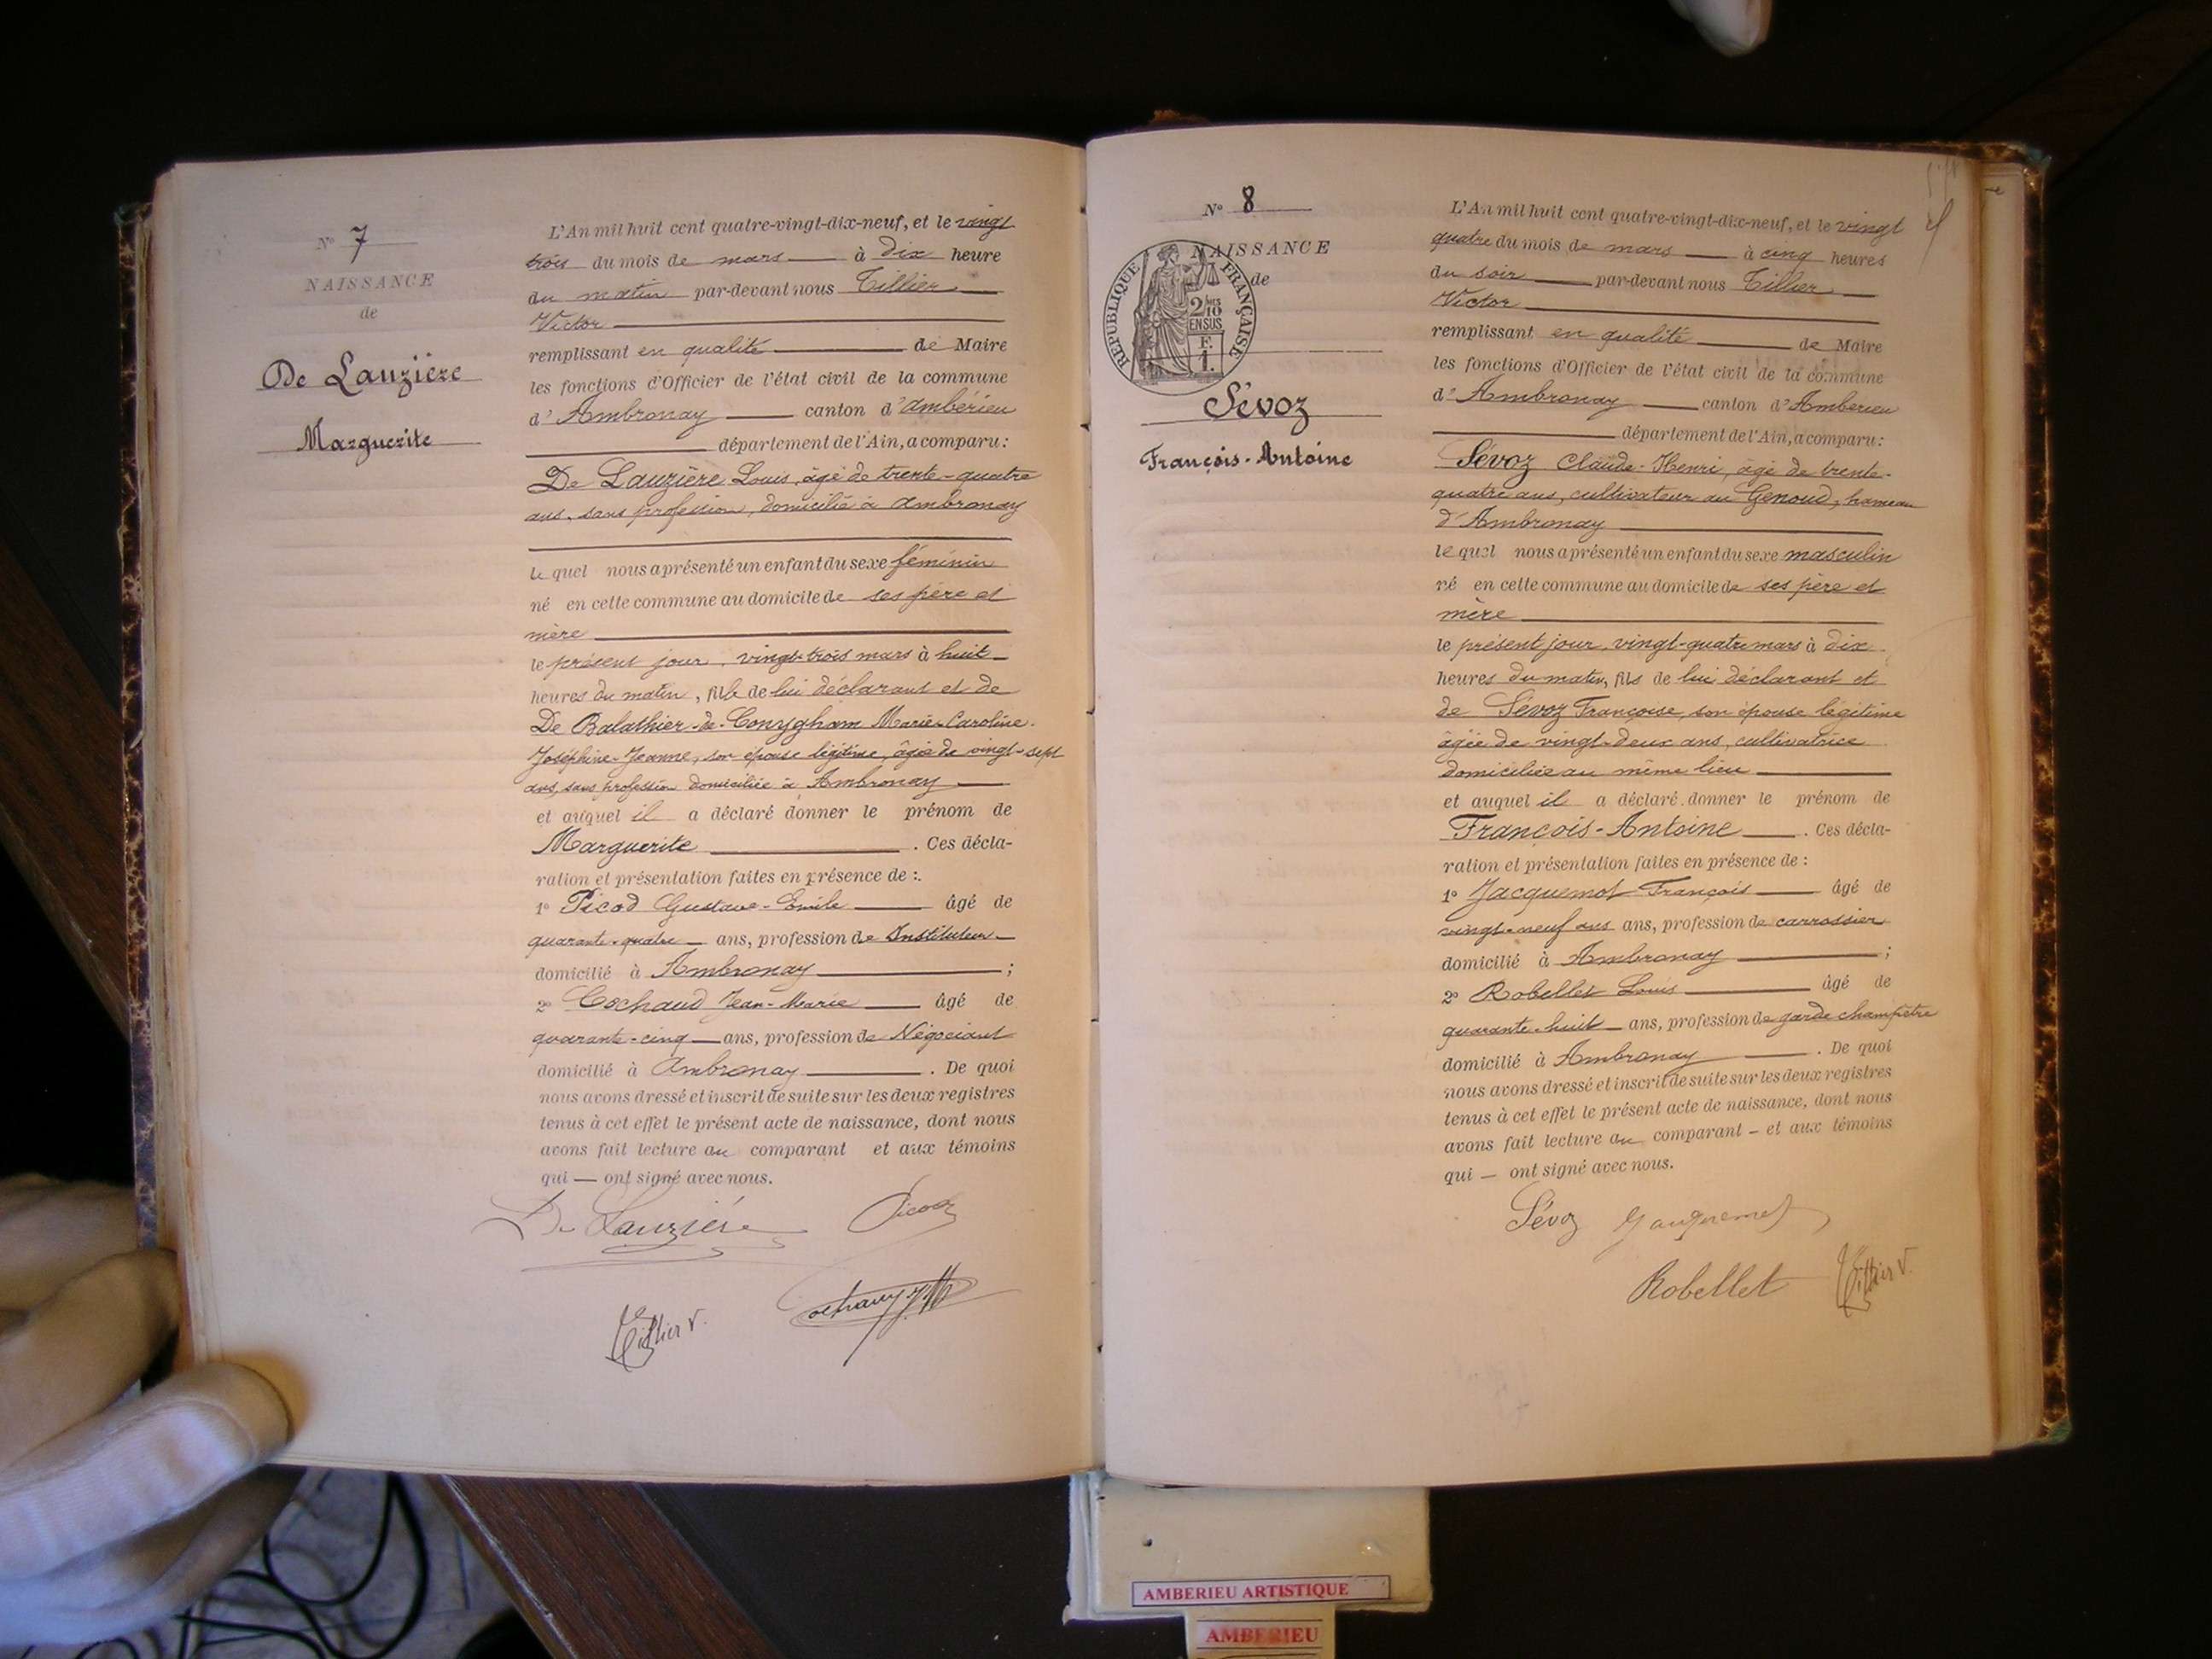 N° 7
NAISSANCE
de
De Lauzière
Marguerite
L'An mil huit cent quatre-vingt-dix-neuf, et le vingt
trois du mois de mars à dix heure
du matin par-devant nous Tillier
Victor
remplissant en qualité de Maire
les fonctions d'Officier de l'état civil de la commune
d'Ambronay canton d'Ambérieu
département de l'Ain, a comparu :
De Lauzière Louis, âgé de trente-quatre
ans, sans profession, domicilié à Ambronay
le quel nous a présenté un enfant du sexe féminin
né en cette commune au domicile de ses père et
mère
le présent jour, vingt-trois mars à huit
heures du matin, fille de lui déclarant et de
De Balathier-de-Conygham Marie-Caroline-
Joséphine-Jeanne, son épouse légitime, âgée de vingt-sept
ans, sans profession domiciliée à Ambronay
et auquel il a déclaré donner le prénom de
Marguerite. Ces décla-
ration et présentation faites en présence de :
1° Picod Gustave-Emile âgé de
quarante-quatre ans, profession de Instituteur
domicilié à Ambronay ;
2° Cochaud Jean-Marie âgé de
quarante-cinq ans, profession de Négociant
domicilié à Ambronay. De quoi
nous avons dressé et inscrit de suite sur les deux registres
tenus à cet effet le présent acte de naissance, dont nous
avons fait lecture au comparant et aux témoins
qui — ont signé avec nous.
De Lauzière Picod
Tillier V.
N° 8
NAISSANCE
de
REPUBLIQUE FRANÇAISE
2/10
EN SUS
F.
1.
Sévoz
François-Antoine
L'An mil huit cent quatre-vingt-dix-neuf, et le vingt
quatre du mois de mars à cinq heures
du soir par-devant nous Tillier
Victor
remplissant en qualité de Maire
les fonctions d'Officier de l'état civil de la commune
d'Ambronay canton d'Ambérieu
département de l'Ain, a comparu :
Sévoz Claude-Henri, âgé de trente-
quatre ans, cultivateur au Genoud, hameau
d'Ambronay
le quel nous a présenté un enfant du sexe masculin
né en cette commune au domicile de ses père et
mère
le présent jour, vingt-quatre mars à dix
heures du matin, fils de lui déclarant et
de Sévoz Françoise, son épouse légitime
âgée de vingt-deux ans, cultivatrice
domiciliée au même lieu
et auquel il a déclaré donner le prénom de
François-Antoine. Ces décla-
ration et présentation faites en présence de :
1° Jacquemot François âgé de
vingt-neuf ans ans, profession de carrossier
domicilié à Ambronay ;
2° Robellet Louis âgé de
quarante-huit ans, profession de garde champêtre
domicilié à Ambronay. De quoi
nous avons dressé et inscrit de suite sur les deux registres
tenus à cet effet le présent acte de naissance, dont nous
avons fait lecture au comparant — et aux témoins
qui — ont signé avec nous.
Sévoz
Robellet Tillier V.
AMBERIEU ARTISTIQUE
AMBERIEU